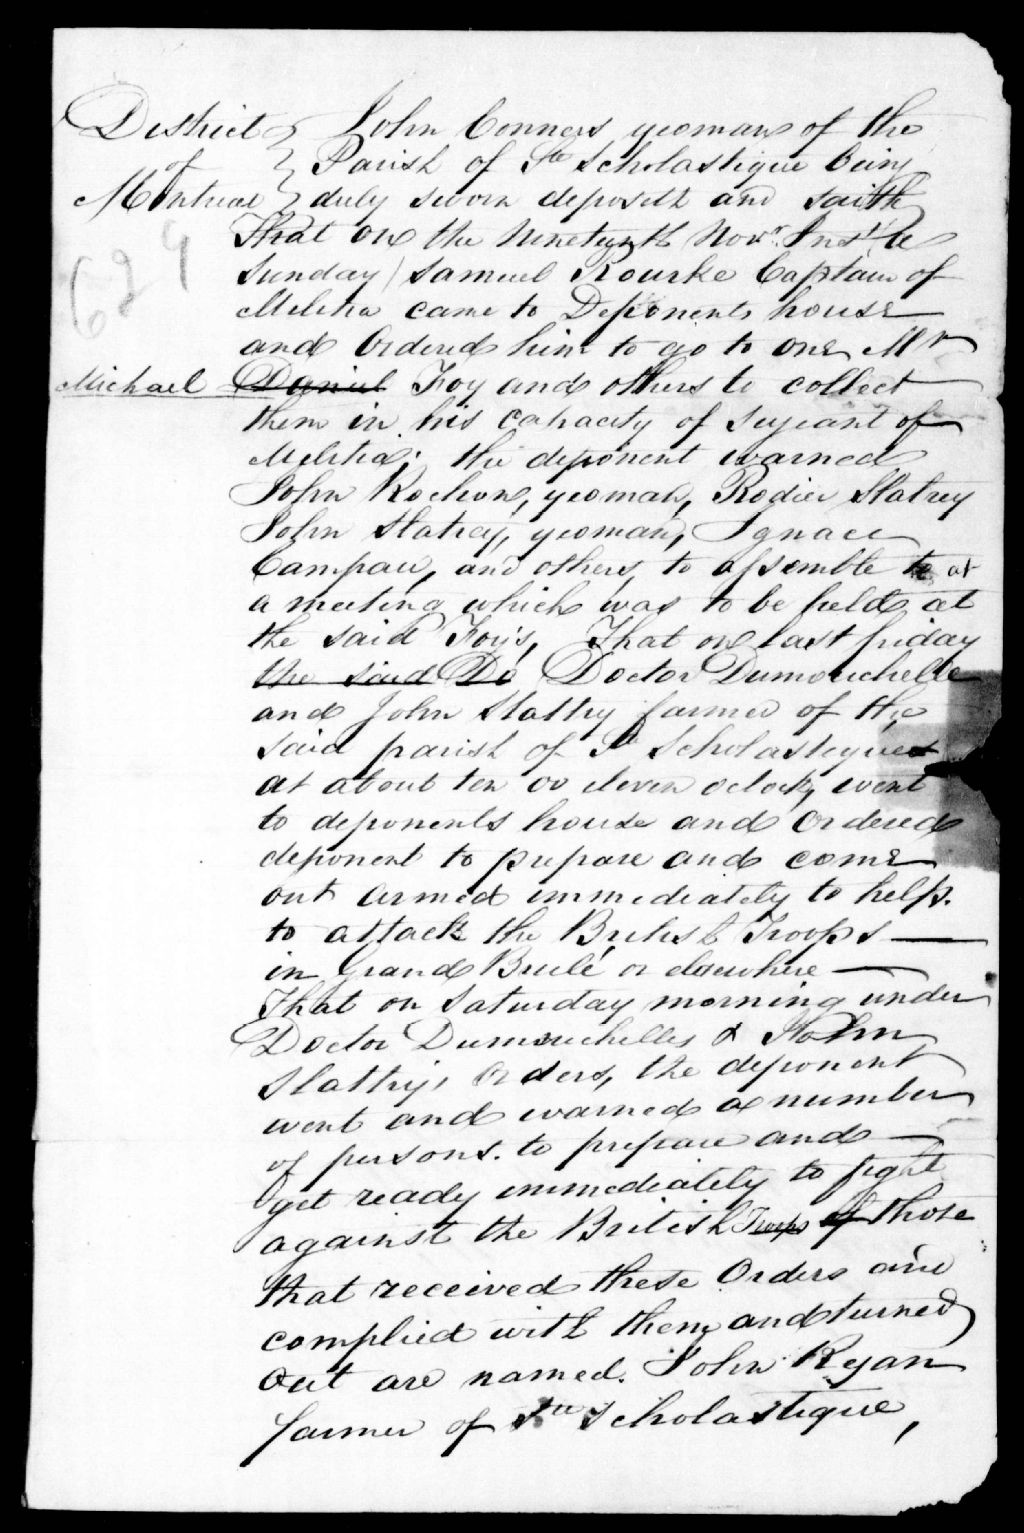 District } John Conners, yeoman of the
of } Parish of Ste Scholastique being
Montreal } duly sworn deposeth and saith
That on the Nineteenth Novr. Inst
629
Sunday / Samuel Rourke Captain of
Militia came to Deponents house
and Ordered him to go to one Mr
Michael Daniel Foy and others to collect
them in his capacity of sergeant of
Militia; the deponent warned
John Rocheon, yeoman, Rodier Slatrey
John Slatrey, yeoman, Ignace
Campau, and others, to assemble to at
a meeting which was to be held at
the said Foy's, That on last friday
the said Do Doctor Dumouchelle
and John Slattry farmer of the
said parish of St Scholastique
at about ten or eleven oclock, went
to deponents house and Ordered
deponent to prepare and come
out armed immediately to help.
to attack the British Troops
in Grand Brulé or elsewhere
That on Saturday morning under
Doctor Dumouchelles & John
Slattry's Orders, the deponent
went and warned a number
of persons. to prepare and
get ready immediately to fight
against the British Troops of those
that received these Orders and
complied with them, and turned
Out are named. John Ryan
farmer of Ste Scholastique,